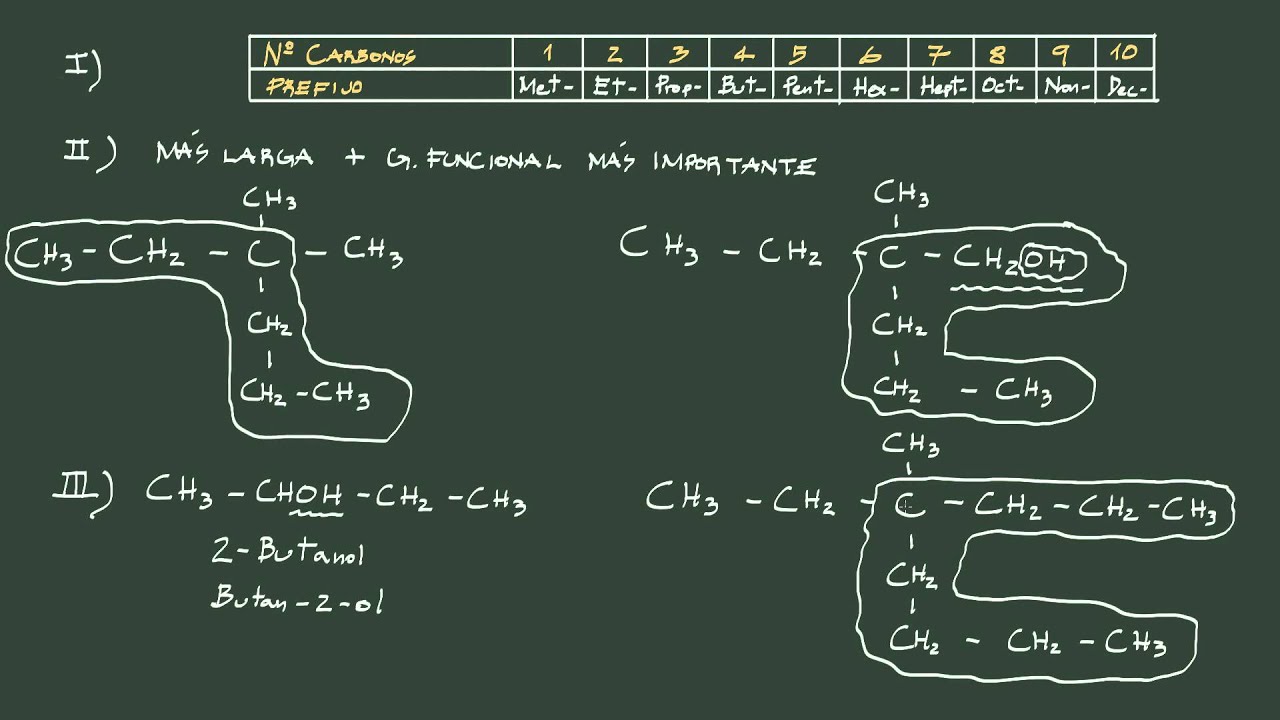 I)
Nº CARBONOS 1 2 3 4 5 6 7 8 9 10
PREFIJO Met- Et- Prop- But- Pent- Hex- Hept- Oct- Non- Dec-
II) MÁS LARGA + G. FUNCIONAL MÁS IMPORTANTE
CH3
CH3 - CH2 - C - CH3
CH2
CH2 - CH3
CH3
CH3 - CH2 - C - CH2OH
CH2
CH2 - CH3
III) CH3 - CHOH - CH2 - CH3
2-Butanol
Butan-2-ol
CH3
CH3 - CH2 - C - CH2 - CH2 - CH3
CH2
CH2 - CH2 - CH3